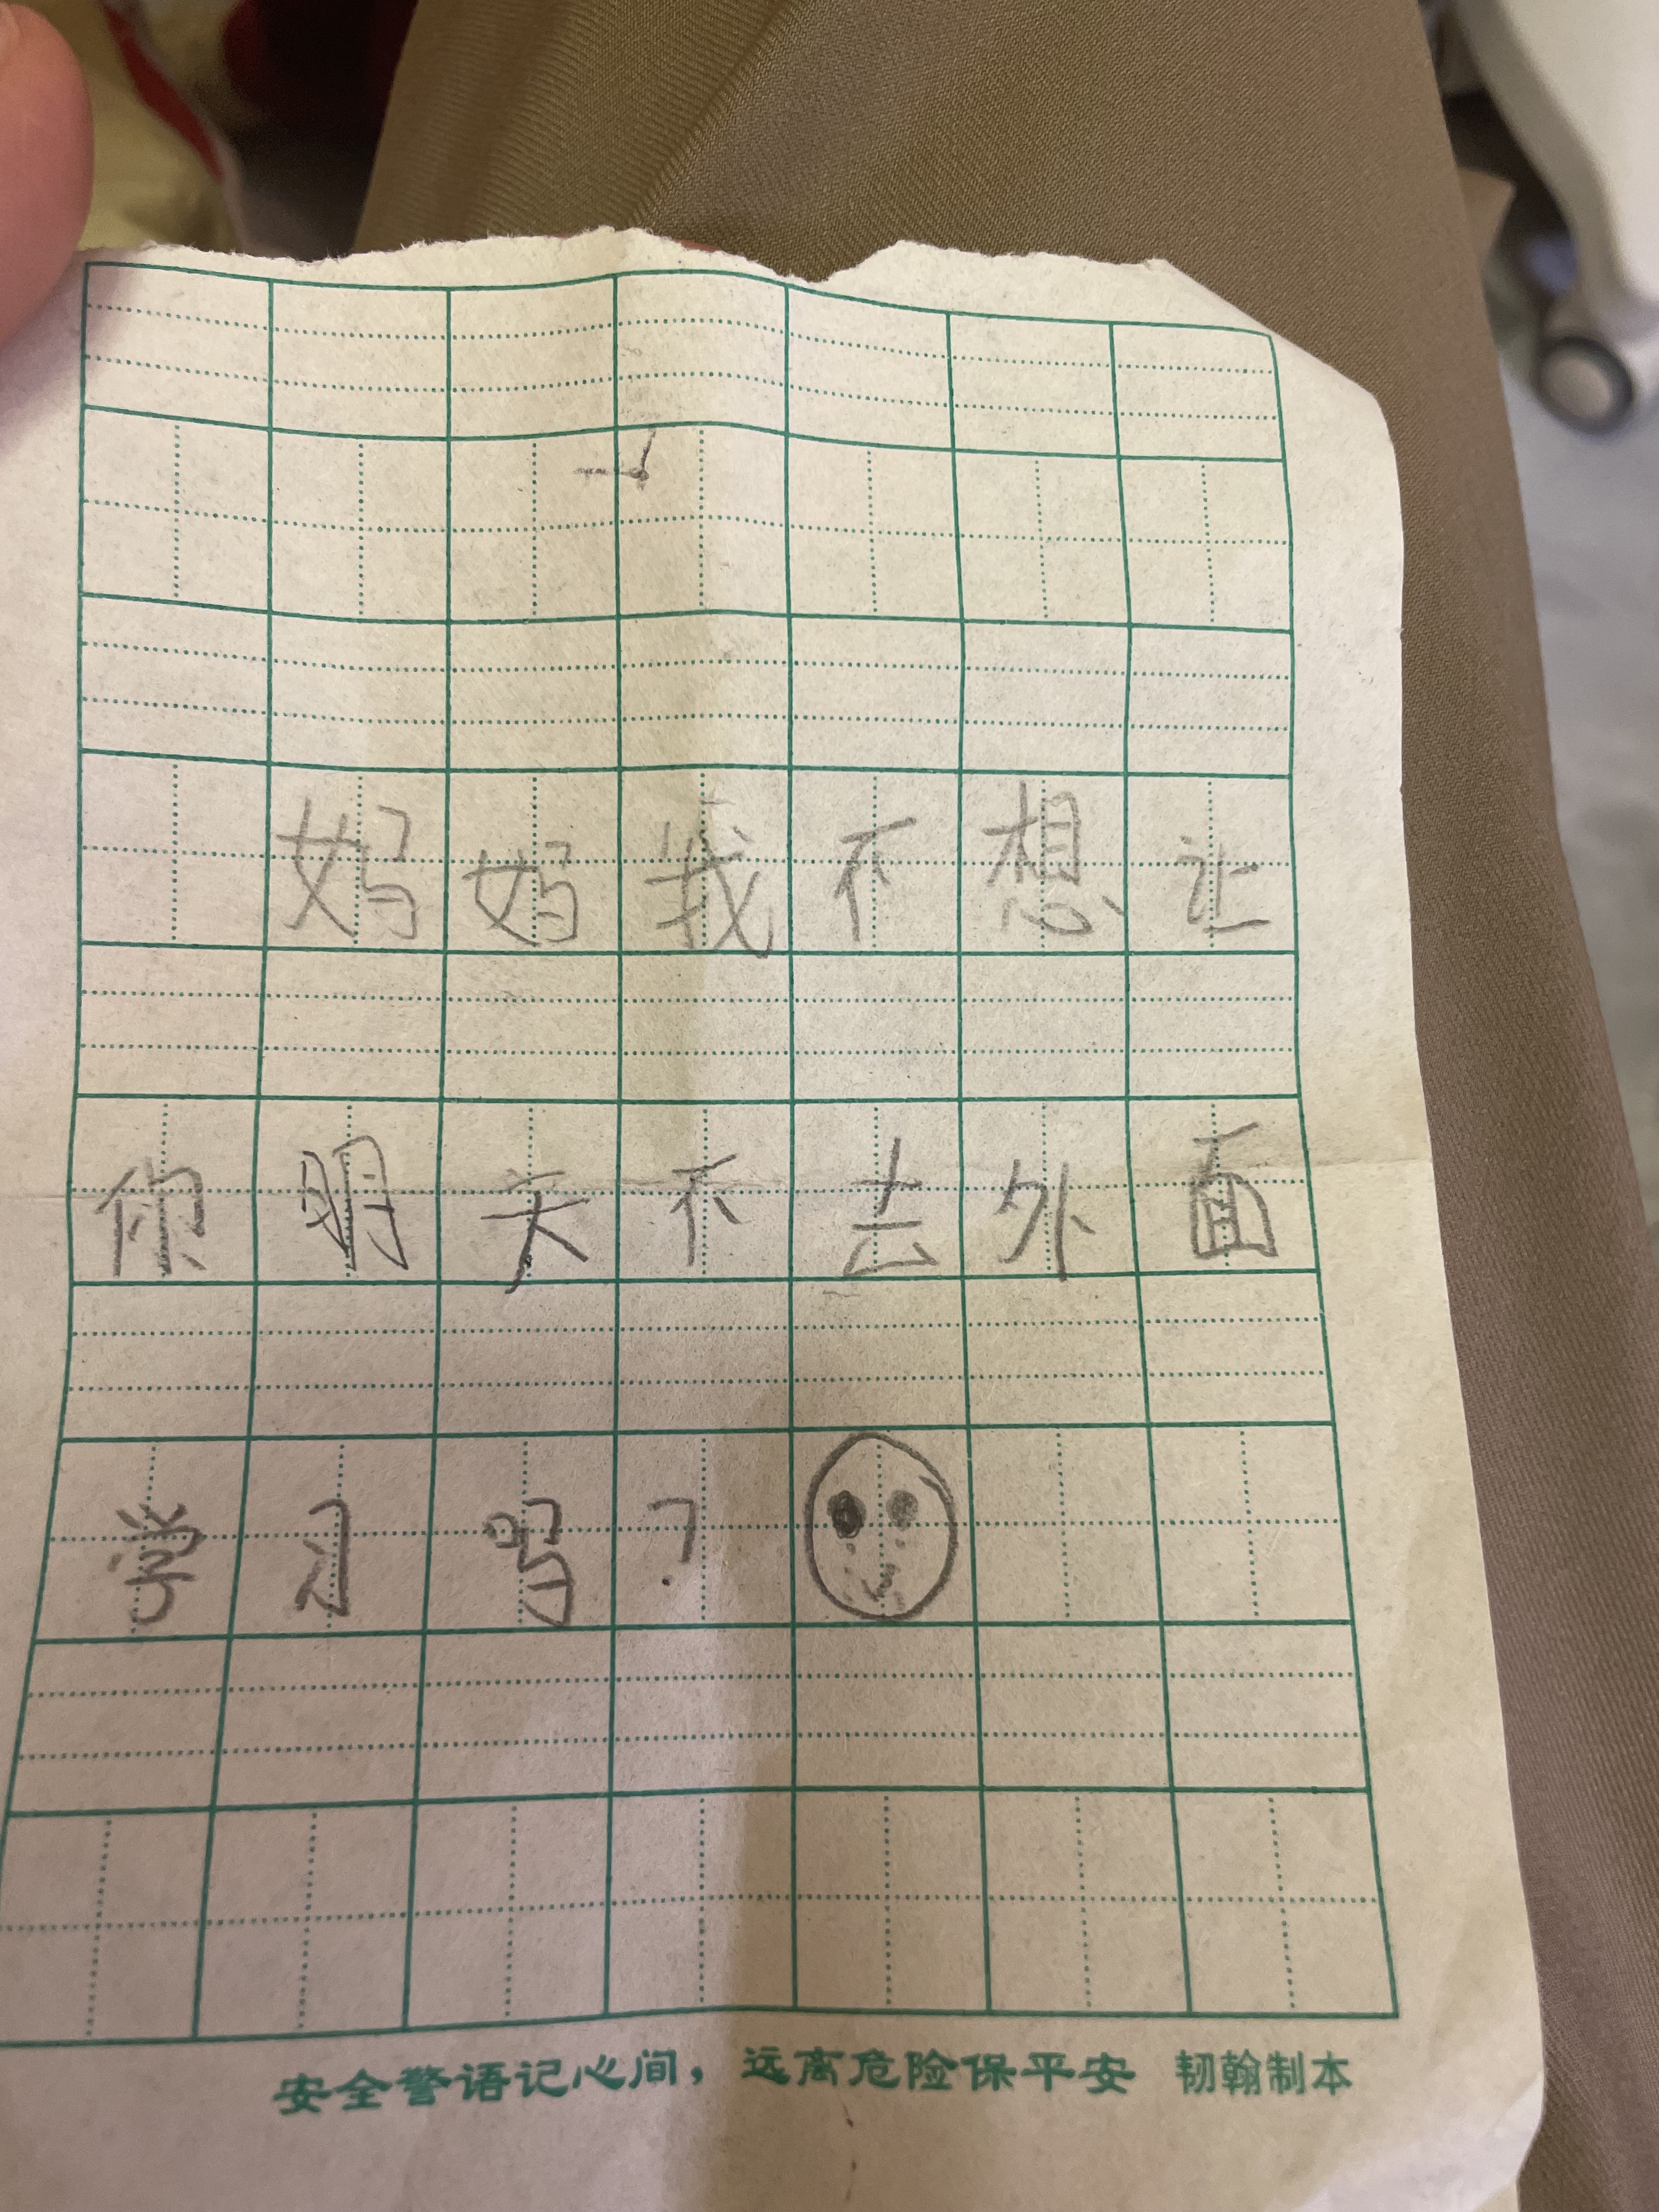 妈妈我不想让
你明天不去外面
学习吗?
安全警语记心间，远离危险保平安 韧翰制本